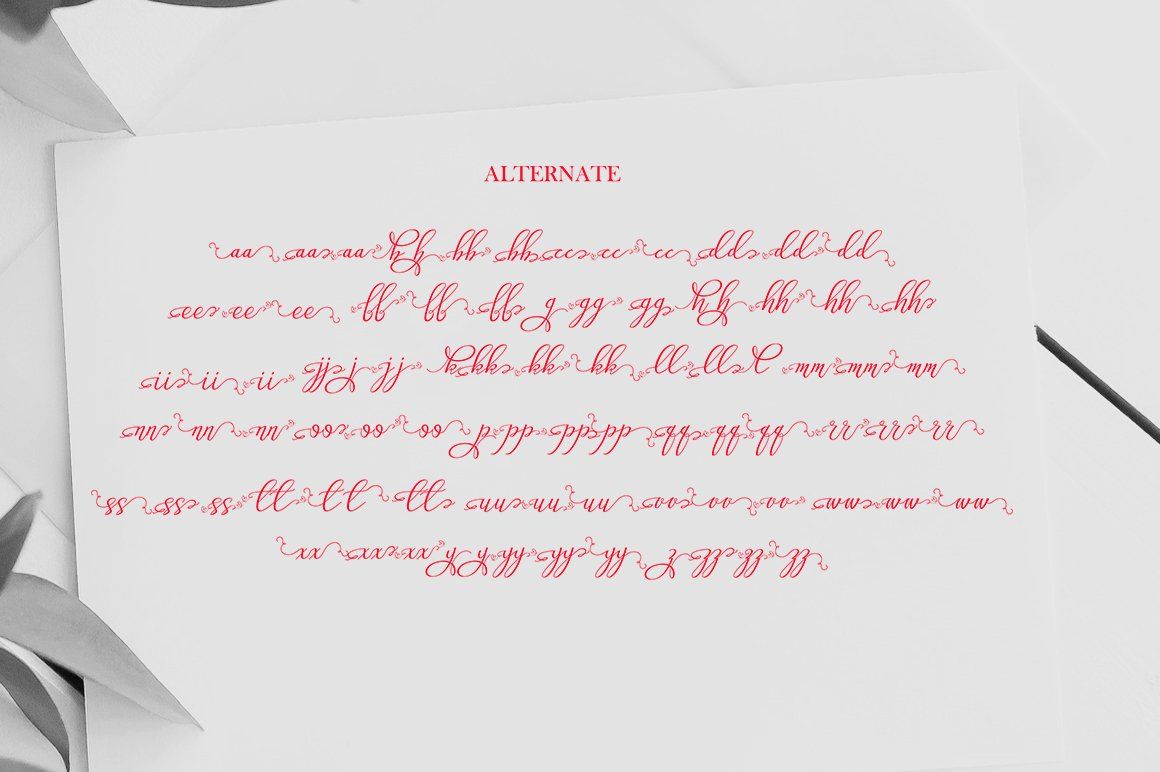 ALTERNATE
aa aa aa h h bb bb cc cc cc dd dd dd
ee ee ee ff ff ff g gg gg h h hh hh hh
ii ii ii jj j jj k kk kk kk ll ll l mm mm mm
nn nn nn oo oo oo p pp pp pp qq qq qq rr rr rr
ss ss ss tt tt tt uu uu uu vv vv vv ww ww ww
xx xx xx y y yy yy yy z zz zz zz